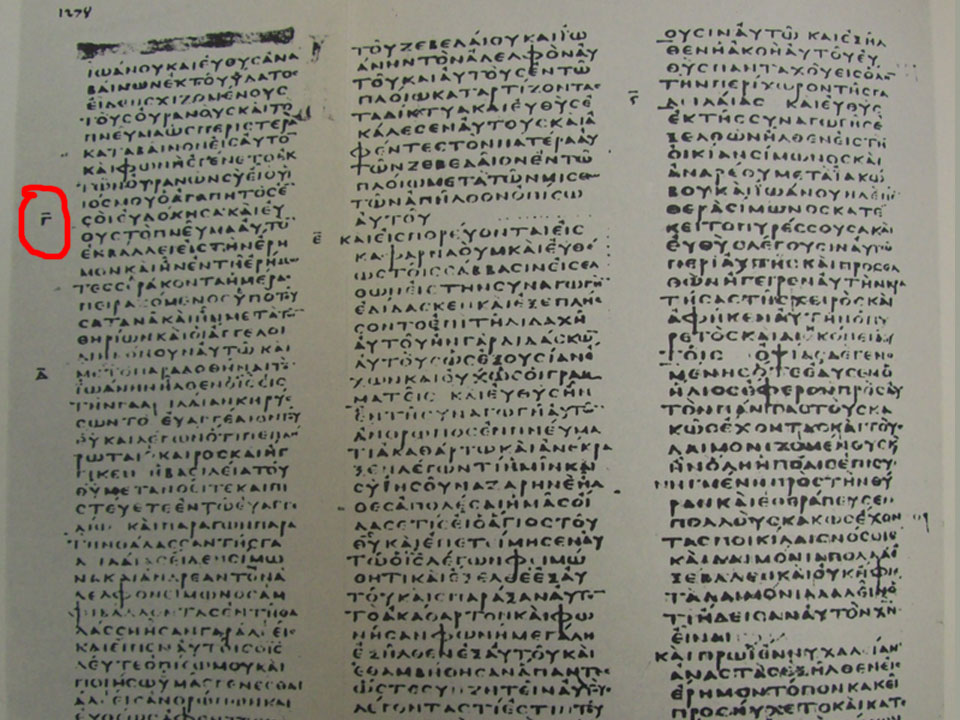 1278
ΙΩΑΝΟΥΚΑΙΕΥΘΥϹΑΝΑ
ΒΑΙΝΩΝΕΚΤΟΥΥΔΑΤΟϹ
ΕΙΔΕΝϹΧΙΖΟΜΕΝΟΥϹ
ΤΟΥϹΟΥΡΑΝΟΥϹΚΑΙΤΟ
ΠΝΕΥΜΑΩϹΠΕΡΙϹΤΕΡΑ
ΚΑΤΑΒΑΙΝΟΝΕΙϹΑΥΤΟ
ΚΑΙΦΩΝΗΕΓΕΝΕΤΟΕΚ
ΤΩΝΟΥΡΑΝΩΝϹΥΕΙΟΥΙ
ΙΟϹΜΟΥΟΑΓΑΠΗΤΟϹΕ
Γ
ϹΟΙΕΥΔΟΚΗϹΑΚΑΙΕΥ
ΘΥϹΤΟΠΝΕΥΜΑΑΥΤΟ
ΕΚΒΑΛΛΕΙΕΙϹΤΗΝΕΡΗ
ΜΟΝΚΑΙΗΝΕΝΤΗΕΡΗΜΩ
ΤΕϹϹΕΡΑΚΟΝΤΑΗΜΕΡΑϹ
ΠΕΙΡΑΖΟΜΕΝΟϹΥΠΟΤΟΥ
ϹΑΤΑΝΑΚΑΙΗΝΜΕΤΑΤΩ
ΘΗΡΙΩΝΚΑΙΟΙΑΓΓΕΛΟΙ
ΔΙΗΚΟΝΟΥΝΑΥΤΩ ΚΑΙ
Δ
ΜΕΤΑΤΟΠΑΡΑΔΟΘΗΝΑΙΤΟ
ΙΩΑΝΗΝΗΛΘΕΝΟΙϹΕΙϹ
ΤΗΝΓΑΛΙΛΑΙΑΝΚΗΡΥϹ
ϹΩΝΤΟ ΕΥΑΓΓΕΛΙΟΝΤΟΥ
ΘΥΚΑΙΛΕΓΩΝΟΤΙΠΕΠΛΗ
ΡΩΤΑΙΟΚΑΙΡΟϹΚΑΙΗΓ
ΓΙΚΕΝΗΒΑϹΙΛΕΙΑΤΟΥ
ΘΥΜΕΤΑΝΟΕΙΤΕΚΑΙΠΙ
ϹΤΕΥΕΤΕΕΝΤΩΕΥΑΓΓΕ
ΛΙΩ ΚΑΙΠΑΡΑΓΩΝΠΑΡΑ
ΤΗΝΘΑΛΑϹϹΑΝΤΗϹΓΑ
ΛΙΛΑΙΑϹΕΙΔΕΝϹΙΜΩ
ΝΑΚΑΙΑΝΔΡΕΑΝΤΟΝΑ
ΔΕΛΦΟΝϹΙΜΩΝΟϹΑΜ
ΦΙΒΑΛΛΟΝΤΑϹΕΝΤΗΘΑ
ΛΑϹϹΗΗϹΑΝΓΑΡΑΛΕΕΙϹ
ΚΑΙΕΙΠΕΝΑΥΤΟΙϹΟΙϹ
ΔΕΥΤΕΟΠΙϹΩΜΟΥΚΑΙ
ΠΟΙΗϹΩΥΜΑϹΓΕΝΕϹΘΑΙ
ΑΛΕΕΙϹΑΝΘΡΩΠΩΝΚΑΙ
ΤΟΥΖΕΒΕΔΑΙΟΥΚΑΙΙΩ
ΑΝΗΝΤΟΝΑΔΕΛΦΟΝΑΥ
ΤΟΥΚΑΙΑΥΤΟΥϹΕΝΤΩ
ΠΛΟΙΩΚΑΤΑΡΤΙΖΟΝΤΑϹ
ΤΑΔΙΚΤΥΑΚΑΙΕΥΘΥϹΕ
ΚΑΛΕϹΕΝΑΥΤΟΥϹΚΑΙΑ
ΦΕΝΤΕϹΤΟΝΠΑΤΕΡΑΑΥ
ΤΩΝΖΕΒΕΔΑΙΟΝΕΝΤΩ
ΠΛΟΙΩΜΕΤΑΤΩΝΜΙϹΘΩ
ΤΩΝΑΠΗΛΘΟΝΟΠΙϹΩ
ΑΥΤΟΥ
Ε
ΚΑΙΕΙϹΠΟΡΕΥΟΝΤΑΙΕΙϹ
ΚΑΦΑΡΝΑΟΥΜΚΑΙΕΥΘΥ
ΩϹΤΟΙϹϹΑΒΒΑϹΙΝΕΙϹΕΛ
ΘΩΝΕΙϹΤΗΝϹΥΝΑΓΩΓΗ
ΕΔΙΔΑϹΚΕΝΚΑΙΕΞΕΠΛΗϹ
ϹΟΝΤΟΕΠΙΤΗΔΙΔΑΧΗ
ΑΥΤΟΥΗΝΓΑΡΔΙΔΑϹΚΩ
ΑΥΤΟΥϹΩϹΕΞΟΥϹΙΑΝΕ
ΧΩΝΚΑΙΟΥΧΩϹΟΙΓΡΑΜ
ΜΑΤΕΙϹ ΚΑΙΕΥΘΥϹΗΝ
ΕΝΤΗϹΥΝΑΓΩΓΗΑΥΤΩ
ΑΝΘΡΩΠΟϹΕΝΠΝΕΥΜΑ
ΤΙΑΚΑΘΑΡΤΩΚΑΙΑΝΕΚΡΑ
ΞΕΝΛΕΓΩΝΤΙΗΜΙΝΚΑΙ
ϹΥΙΗϹΟΥΝΑΖΑΡΗΝΕΗΛ
ΘΕϹΑΠΟΛΕϹΑΙΗΜΑϹΟΙ
ΔΑϹΕΤΙϹΕΙΟΑΓΙΟϹΤΟΥ
ΘΥΚΑΙΕΠΕΤΙΜΗϹΕΝΑΥ
ΤΩΟΙϹΛΕΓΩΝΦΙΜΩ
ΘΗΤΙΚΑΙΕΞΕΛΘΕΕΞΑΥ
ΤΟΥΚΑΙϹΠΑΡΑΞΑΝΑΥΤΟ
ΤΟΑΚΑΘΑΡΤΟΝΚΑΙΦΩ
ΝΗϹΑΝΦΩΝΗΜΕΓΑΛΗ
ΕΞΗΛΘΕΝΕΞΑΥΤΟΥΚΑΙ
ΕΘΑΜΒΗΘΗϹΑΝΑΠΑΝΤΕϹ
ΩϹΤΕϹΥΖΗΤΕΙΝΑΥΤΟΥϹ
ΛΕΓΟΝΤΑϹΤΙΕϹΤΙΝΤΟΥ
ΟΥϹΙΝΑΥΤΩ ΚΑΙΕΞΗΛ
ΘΕΝΗΑΚΟΗΑΥΤΟΥΕΥ
ΘΥϹΠΑΝΤΑΧΟΥΕΙϹΟΛΗ
ϛ
ΤΗΝΠΕΡΙΧΩΡΟΝΤΗϹΓΑ
ΛΙΛΑΙΑϹ ΚΑΙΕΥΘΥϹ
ΕΚΤΗϹϹΥΝΑΓΩΓΗϹΕ
ΞΕΛΘΩΝΗΛΘΕΝΕΙϹΤΗ
ΟΙΚΙΑΝϹΙΜΩΝΟϹΚΑΙ
ΑΝΔΡΕΟΥΜΕΤΑΙΑΚΩ
ΒΟΥΚΑΙΙΩΑΝΟΥΗΔΕΠΕ
ΘΕΡΑϹΙΜΩΝΟϹΚΑΤΕ
ΚΕΙΤΟΠΥΡΕϹϹΟΥϹΑΚΑΙ
ΕΥΘΥϹΛΕΓΟΥϹΙΝΑΥΤΩ
ΠΕΡΙΑΥΤΗϹΚΑΙΠΡΟϹΕΛ
ΘΩΝΗΓΕΙΡΕΝΑΥΤΗΝΚΡΑ
ΤΗϹΑϹΤΗϹΧΕΙΡΟϹΚΑΙ
ΑΦΗΚΕΝΑΥΤΗΝΟΠΥ
ΡΕΤΟϹΚΑΙΔΙΗΚΟΝΕΙΑΥ
ΤΟΙϹ ΟΨΙΑϹΔΕΓΕΝΟ
ΜΕΝΗϹΟΤΕΕΔΥϹΕΝΟ
ΗΛΙΟϹΕΦΕΡΟΝΠΡΟϹΑΥ
ΤΟΝΠΑΝΤΑϹΤΟΥϹΚΑ
ΚΩϹΕΧΟΝΤΑϹΚΑΙΤΟΥϹ
ΔΑΙΜΟΝΙΖΟΜΕΝΟΥϹΚ
ΗΝΟΛΗΗΠΟΛΙϹΕΠΙϹΥ
ΝΗΓΜΕΝΗΠΡΟϹΤΗΝΘΥ
ΡΑΝΚΑΙΕΘΕΡΑΠΕΥϹΕΝ
ΠΟΛΛΟΥϹΚΑΚΩϹΕΧΟΝ
ΤΑϹΠΟΙΚΙΛΑΙϹΝΟϹΟΙϹ
ΚΑΙΔΑΙΜΟΝΙΑΠΟΛΛΑΕ
ΞΕΒΑΛΕΝΚΑΙΟΥΚΗΦΙΕ
ΤΑΔΑΙΜΟΝΙΑΛΑΛΕΙΝΟ
ΤΙΗΔΕΙϹΑΝΑΥΤΟΝΧΝ
ΕΙΝΑΙ
ΚΑΙΠΡΩΙΕΝΝΥΧΑΛΙΑΝ
ΑΝΑϹΤΑϹΕΞΗΛΘΕΝΕΙϹ
ΕΡΗΜΟΝΤΟΠΟΝΚΑΚΕΙ
ΠΡΟϹΗΥΧΕΤΟΚΑΙΚΑΤ